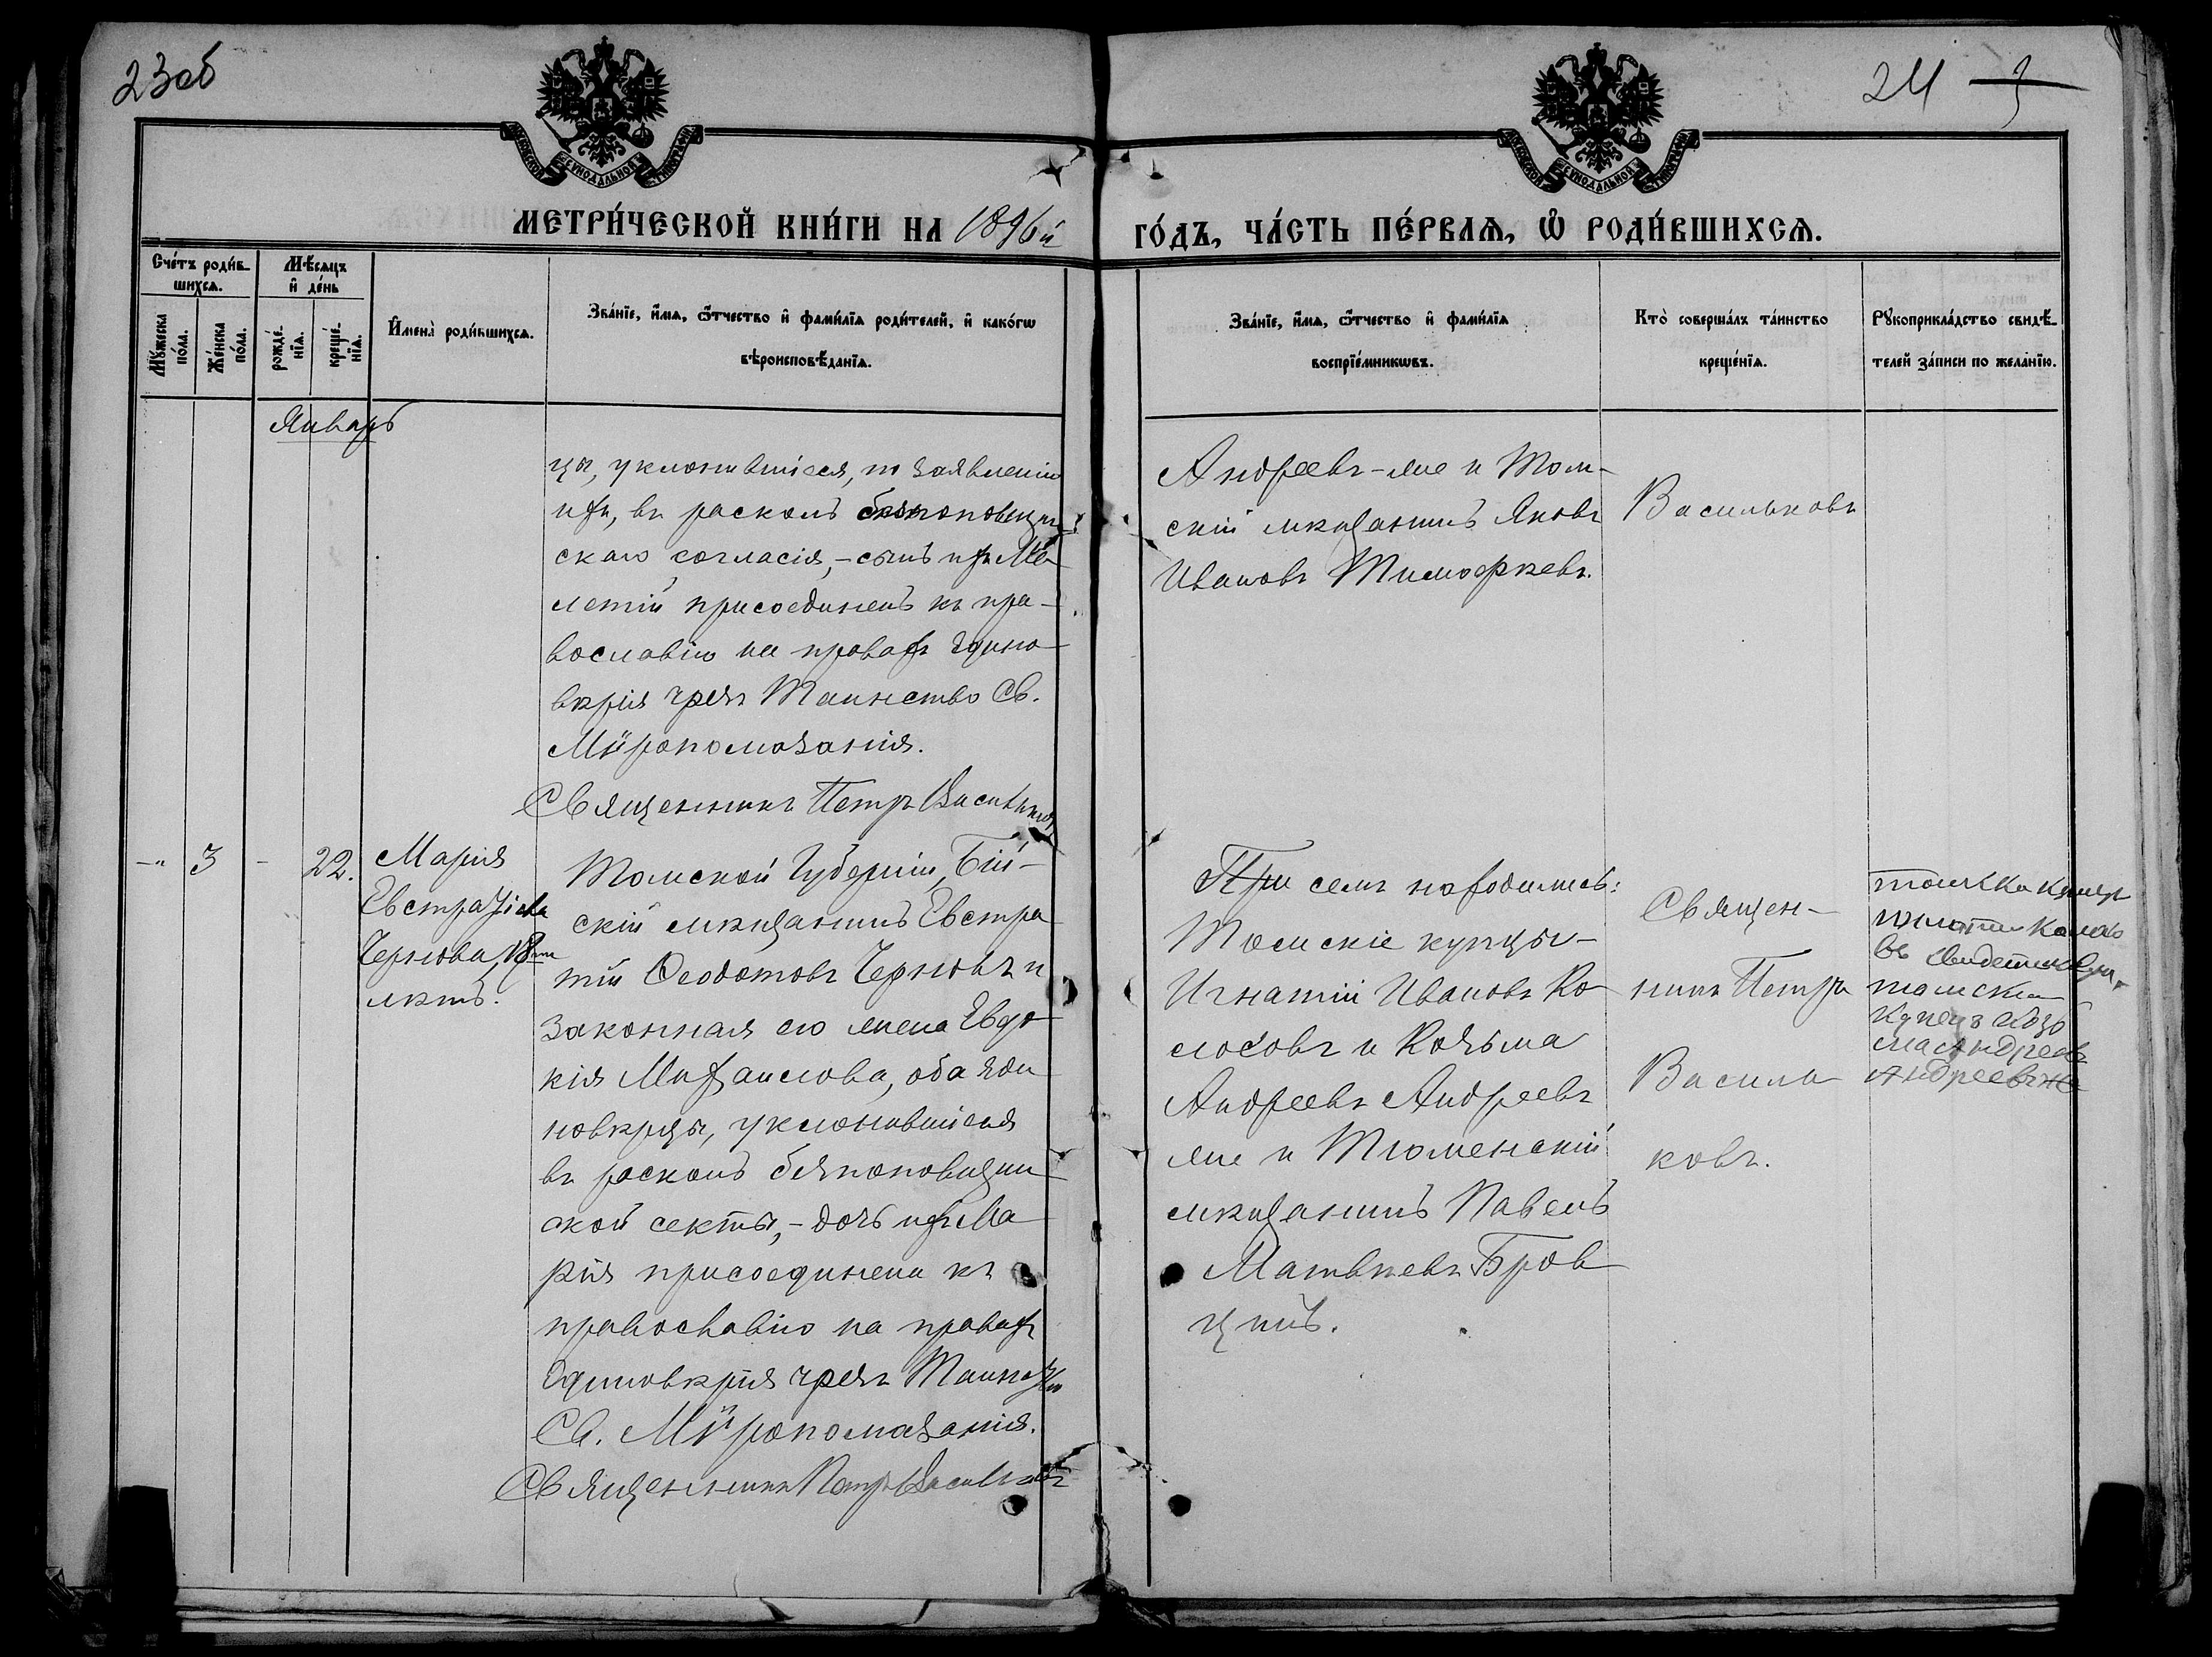 23об
24 3
МОСКОВСКОЙ СѴНОДАЛЬНОЙ ТИПОГРАФІИ
МОСКОВСКОЙ СѴНОДАЛЬНОЙ ТИПОГРАФІИ
МЕТРИ́ЧЕСКОЙ КНИ́ГИ НА 1896й
ГО́ДЪ, ЧА́СТЬ ПЕ́РВАѦ, Ѿ РОДИ́ВШИХСѦ.
Сче́тъ роди́в-
шихсѧ.
Мꙋ́жеска
по́ла.
Же́нска
по́ла.
Мѣ́сѧцъ
и҆ де́нь
рожде́-
нїѧ.
креще́-
нїѧ.
И҆мена̀ роди́вшихсѧ.
Зва́нїе, и҆́мѧ, ѻ҆́тчество и҆ фами́лїѧ роди́телей, и҆ како́гѡ
вѣроисповѣ́данїѧ.
Зва́нїе, и҆́мѧ, ѻ҆́тчество и҆ фами́лїѧ
воспрїе́мникѡвъ.
Кто̀ соверша́лъ та́инство
креще́нїѧ.
Рꙋкоприкла́дство свидѣ́-
телей за́писи по жела́нїю.
Январь
цы, уклонившіеся, по заявленію
ихъ, въ расколъ безпоповщин
скаго согласія, - сынъ ихъ Ме-
летій присоединенъ къ пра-
вославію на правахъ Едино-
вѣрія чрезъ Таинство Св.
Мѵропомазанія.
Священникъ Петръ Васильковъ
Андреевъ-же и Том-
скій мѣщанинъ Яковъ
Ивановъ Тимофѣевъ.
Васильковъ
-" 3 - 22.
Марія
Евстратіева
Чернова, 18ти
лѣтъ.
Томской Губерніи, Бій-
скій мѣщанинъ Евстра
тій Ѳеодотовъ Черновъ и
законная его жена Евдо
кія Михаилова, оба Еди
новѣрцы, уклонившіеся
въ расколъ безпоповщин
ской секты, - дочь ихъ Ма
рія присоединена къ
православію на правахъ
Единовѣрія чрезъ Таинство
Св. Мѵропомазанія.
Священникъ Петръ Васильковъ
При семъ находились:
Томскіе купцы-
Игнатій Ивановъ Ко
лосовъ и Козьма
Андреевъ Андреевъ
же и Тюменскій
мѣщанинъ Павелъ
Матвѣевъ Бров
цинъ.
Священ-
никъ Петръ
Василь
ковъ.
томскій
въ
томский
купец Козь
ма Андреевъ
Андреевъ же